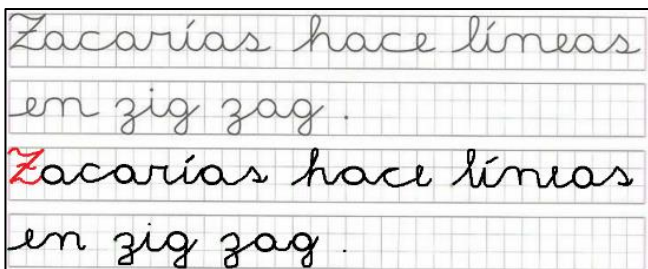 Zacarías hace líneas
en zig zag .
Zacarías hace líneas
en zig zag .